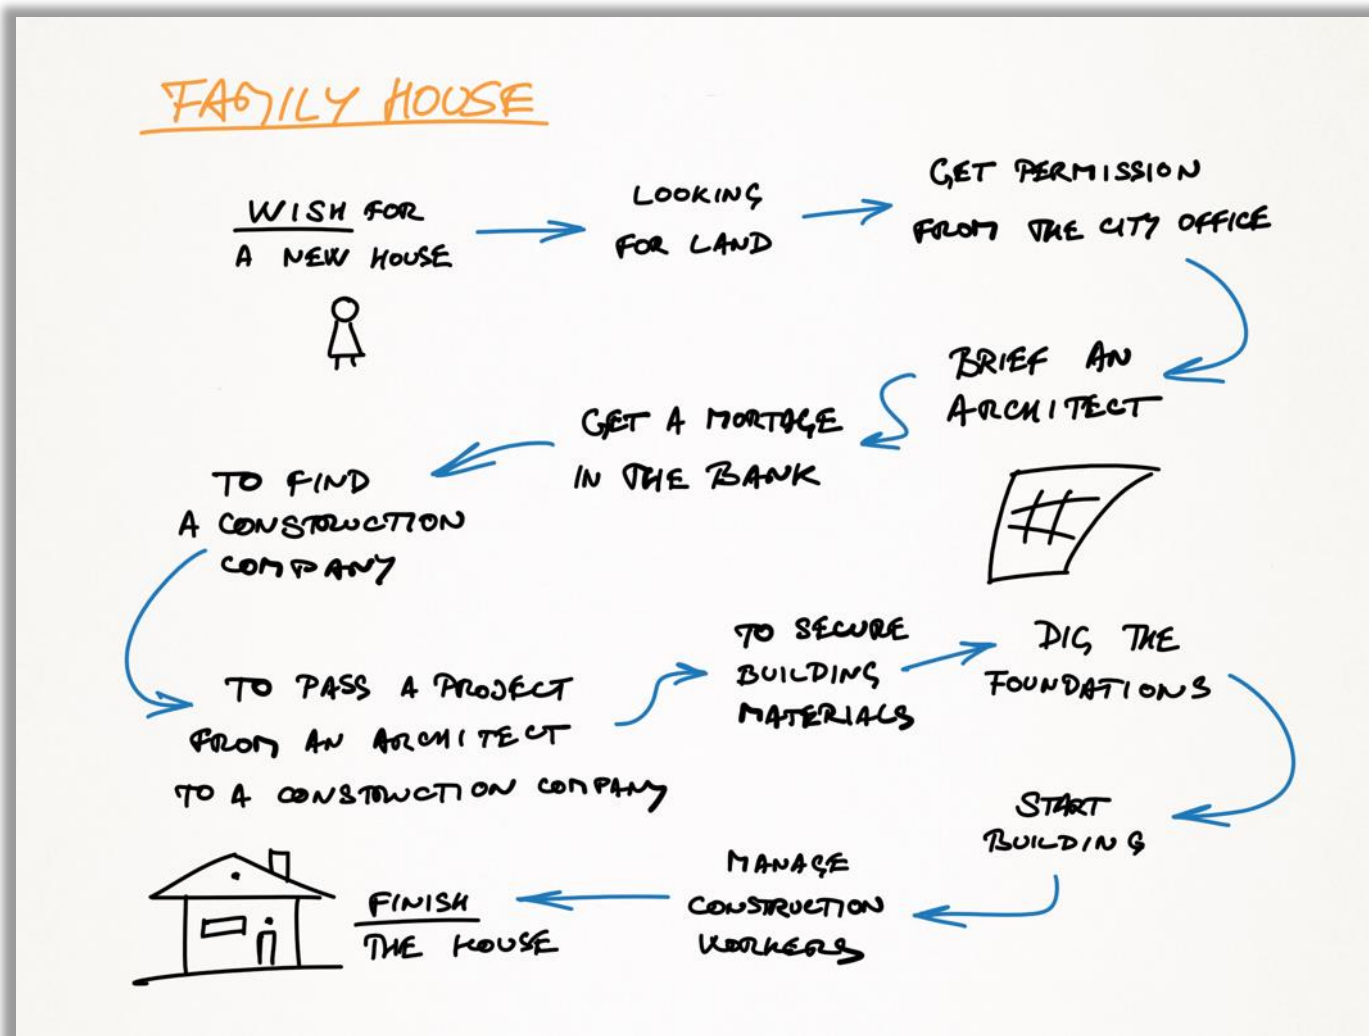 FAMILY HOUSE
WISH FOR
A NEW HOUSE
LOOKING
FOR LAND
GET PERMISSION
FROM THE CITY OFFICE
BRIEF AN
ARCHITECT
GET A MORTAGE
IN THE BANK
TO FIND
A CONSTRUCTION
COMPANY
TO PASS A PROJECT
FROM AN ARCHITECT
TO A CONSTRUCTION COMPANY
TO SECURE
BUILDING
MATERIALS
DIG THE
FOUNDATIONS
START
BUILDING
MANAGE
CONSTRUCTION
WORKERS
FINISH
THE HOUSE